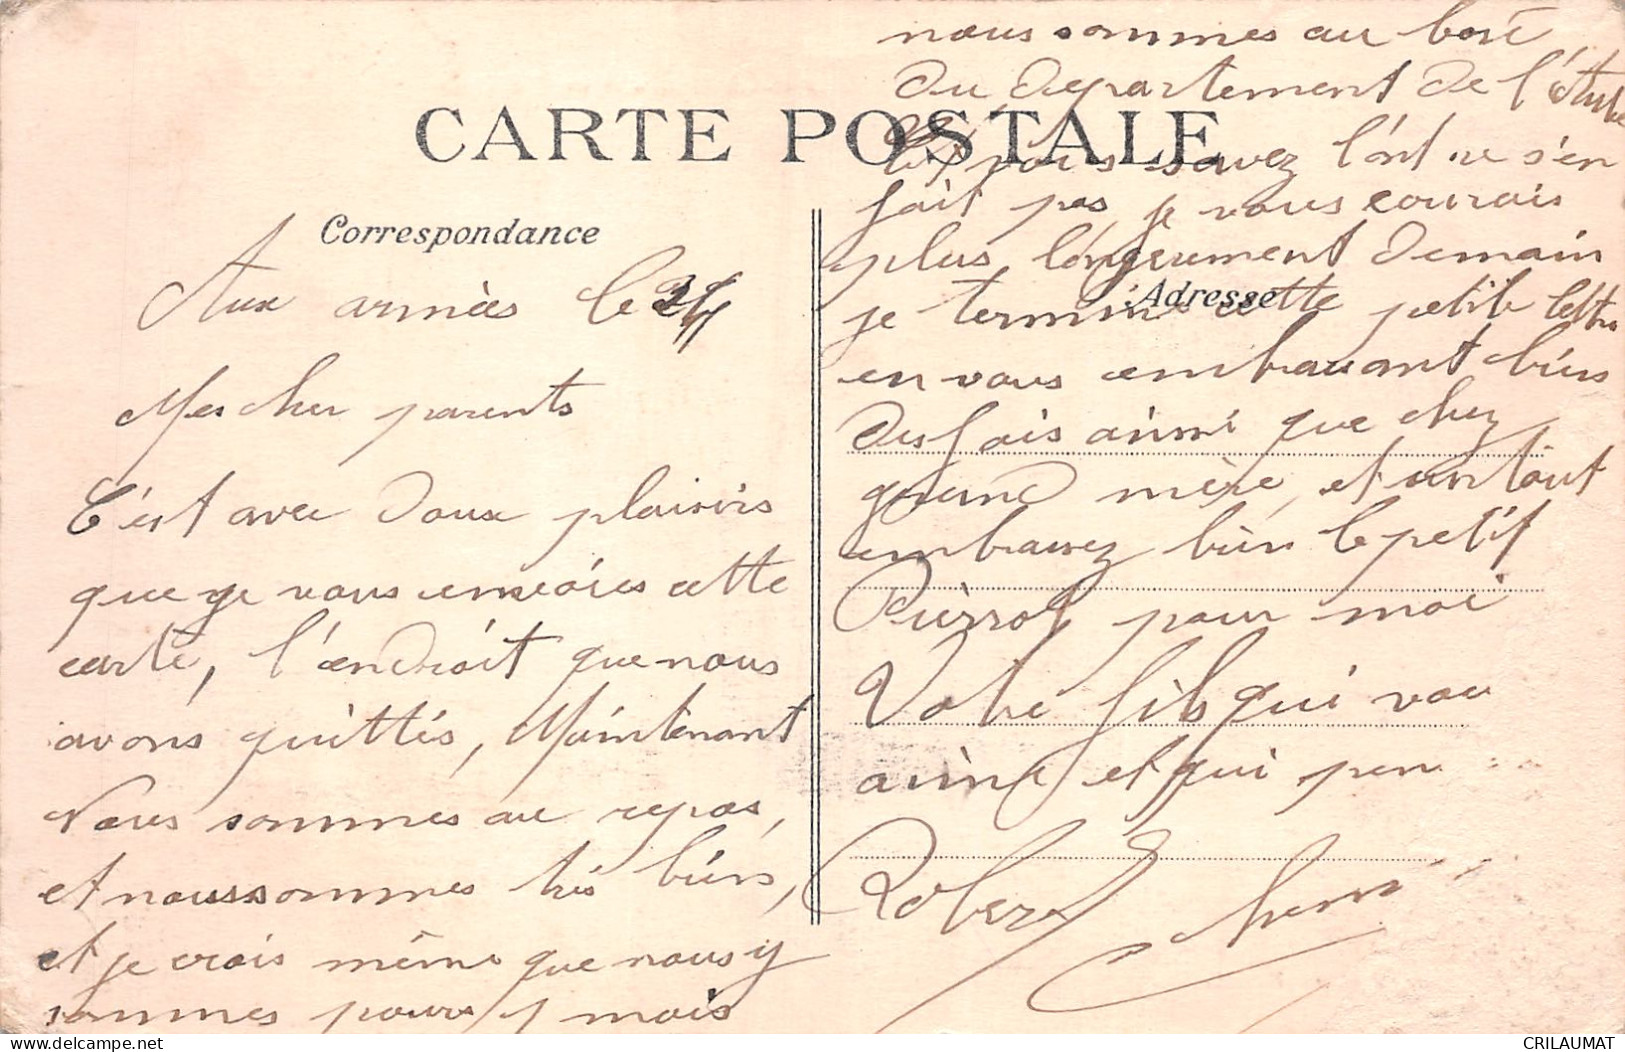 CARTE POSTALE
Correspondance
Aux armées le 24
Mes cher parents
C'est avec doux plaisirs
que je vous envoies cette
carte, l'endroit que nous
avons quittés, Maintenant
Nous sommes au repos,
et nous sommes très bien,
et je crois même que nous y
sommes pour 1 mois
nous sommes au bord
du departement de l'Aube
vous savez l'ont ne s'en
fait pas, je vous
plus longuement demain
Adresse
je termine cette petite lettre
en vous embrassant bien
des fois ainsi que chez
grand mère, et surtout
embrassez bien le petit
Pierrot pour moi
Votre fils qui vous
aime et qui pen
Robert
CRILAUMAT